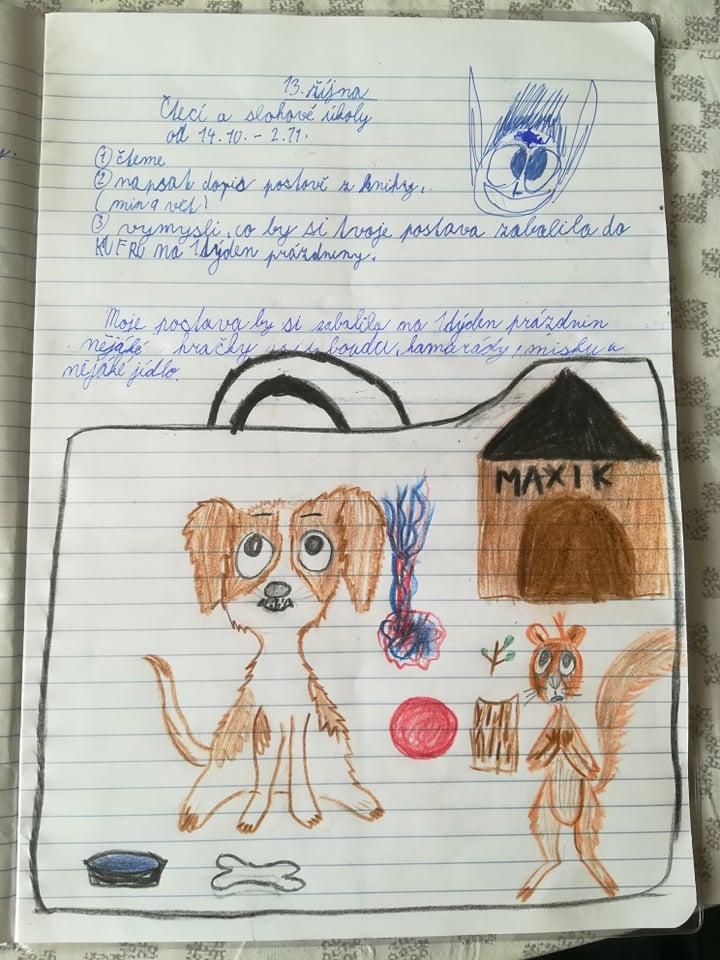 13. října
Čtecí a slohové úkoly
od 14.10. - 2.11.
① čteme
② napsat dopis postově z knihy.
(min 9 vět)
③ vymysli, co by si tvoje postava zabalila do
KUFRU na 1 týden prázdniny.
Moje postava by si zabalila na 1 týden prázdnin
nějaké hračky boudu, kamarády, misku a
nějaké jídlo.
MAXIK